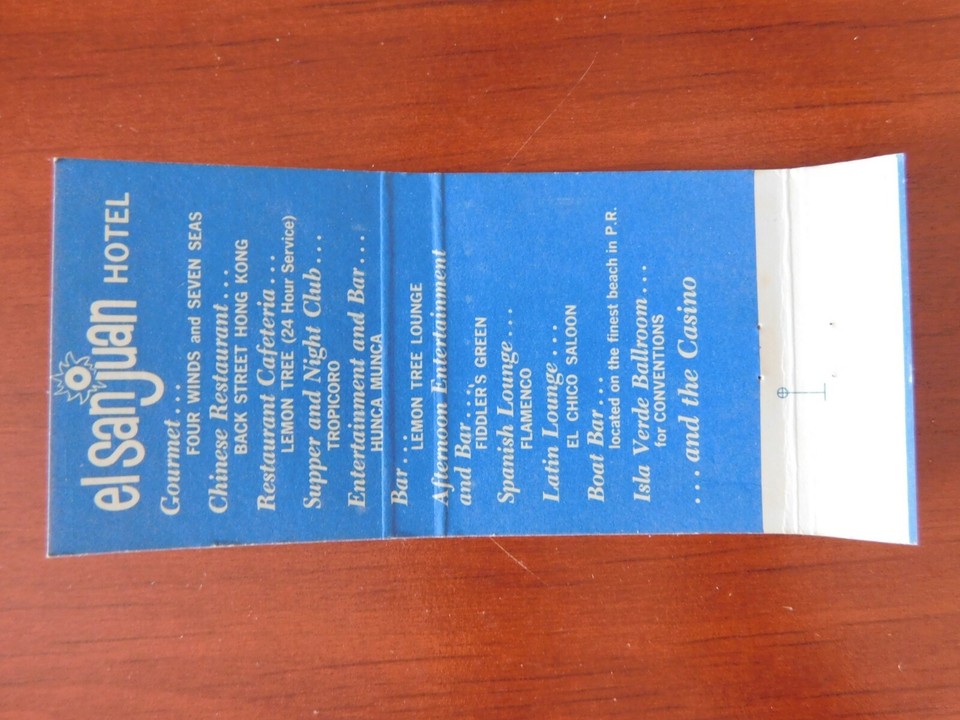 el San Juan HOTEL
Gourmet...
FOUR WINDS and SEVEN SEAS
Chinese Restaurant...
BACK STREET HONG KONG
Restaurant Cafeteria...
LEMON TREE (24 Hour Service)
Supper and Night Club...
TROPICORO
Entertainment and Bar...
HUNCA MUNCA
Bar...
LEMON TREE LOUNGE
Afternoon Entertainment
and Bar...
FIDDLER'S GREEN
Spanish Lounge...
FLAMENCO
Latin Lounge...
EL CHICO SALOON
Boat Bar...
located on the finest beach in P.R.
Isla Verde Ballroom...
for CONVENTIONS
...and the Casino